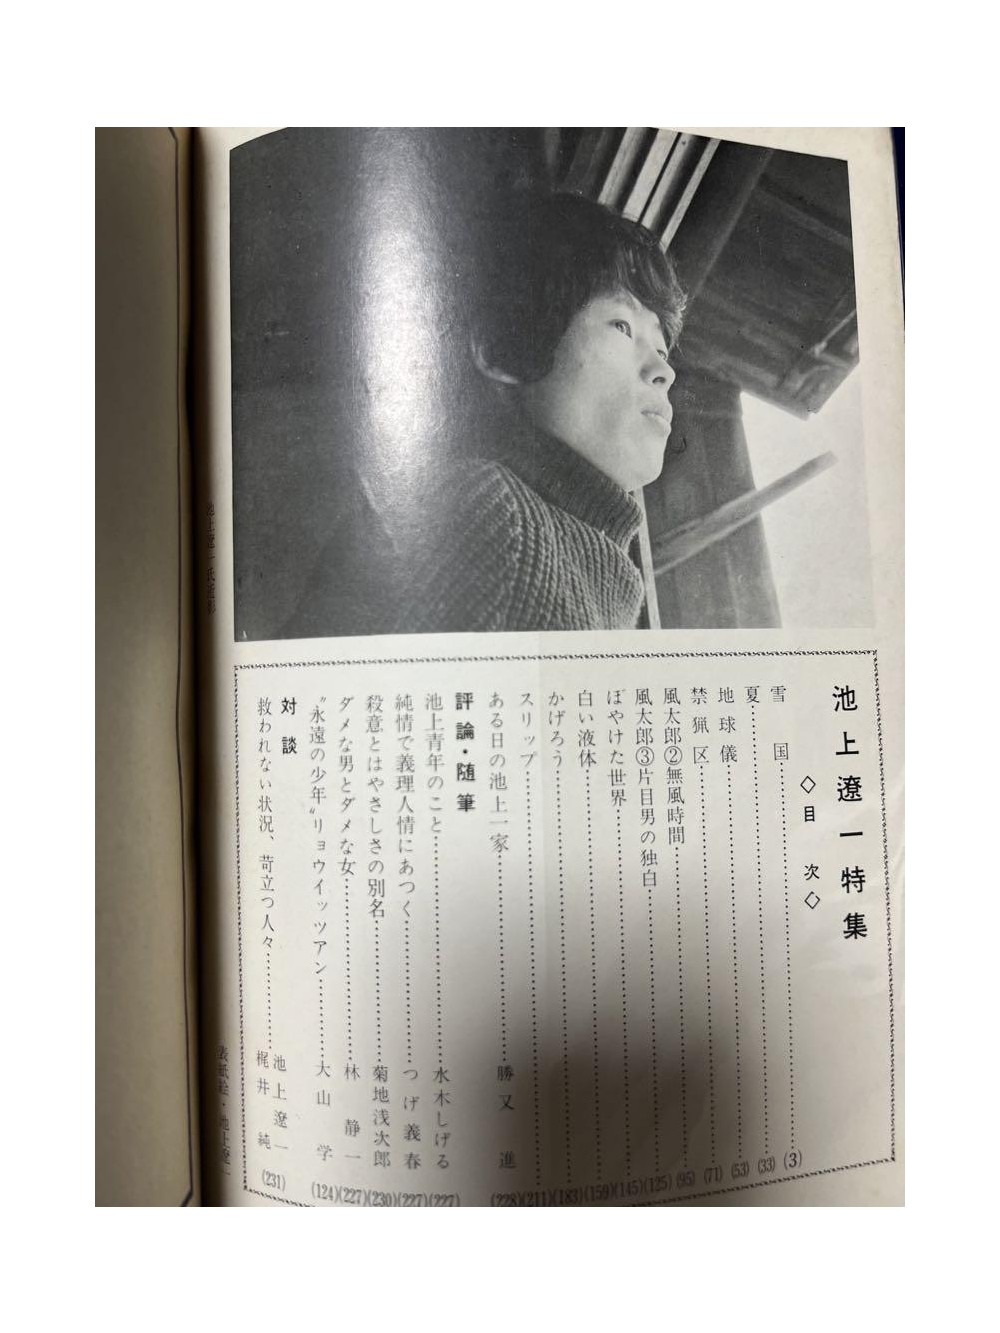 池上遼一特集
◇目 次◇
雪 国……(3)
夏……(33)
地球儀……(53)
禁猟区……(71)
風太郎②無風時間……(95)
風太郎③片目男の独白……(125)
ぼやけた世界……(145)
白い液体……(159)
かげろう……(183)
スリップ……(211)
ある日の池上一家……勝又 進(228)
評論・随筆
池上青年のこと……水木しげる(227)
純情で義理人情にあつく……つげ義春(227)
殺意とはやさしさの別名……菊地浅次郎(230)
ダメな男とダメな女……林 静一(227)
〝永遠の少年〟リョウイッツアン……大山 学(124)
対談
救われない状況、苛立つ人々……池上遼一 梶井 純(231)
池上遼一氏近影
表紙絵・池上遼一